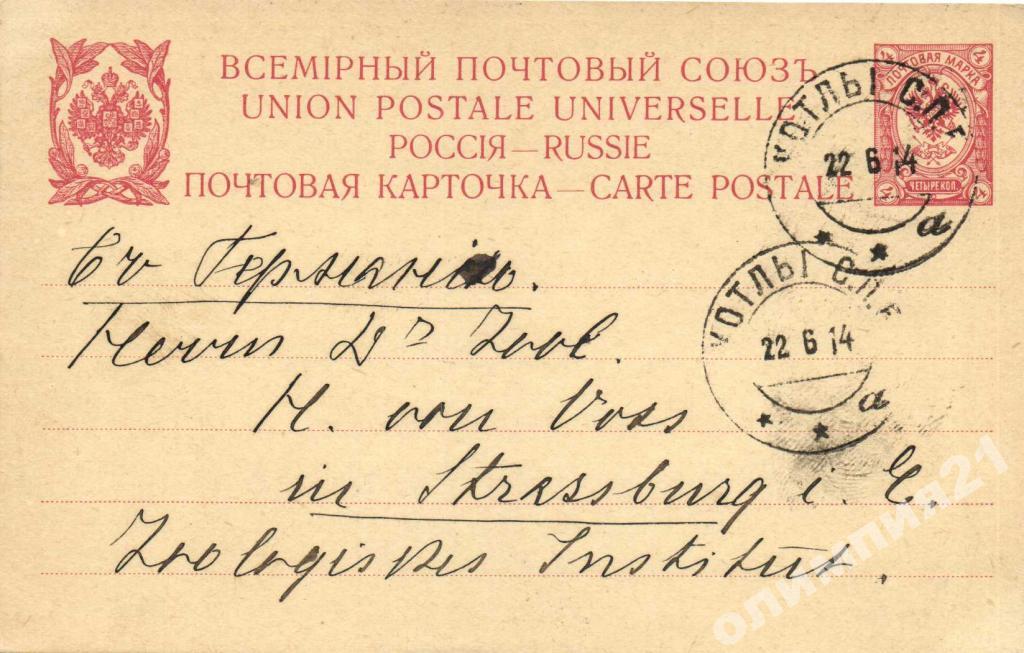 ВСЕМІРНЫЙ ПОЧТОВЫЙ СОЮЗЪ
UNION POSTALE UNIVERSELLE
РОССІЯ—RUSSIE
ПОЧТОВАЯ КАРТОЧКА—CARTE POSTALE
4 ПОЧТОВАЯ МАРКА 4
4 ЧЕТЫРЕ КОП. 4
КОТЛЫ С.П.Б.
22 6 14
а
КОТЛЫ С.П.Б.
22 6 14
а
Въ Германію.
Herrn Dr Zool.
H. von Voss
in Strassburg i. E.
Zoologisches Institut.
олимпия21